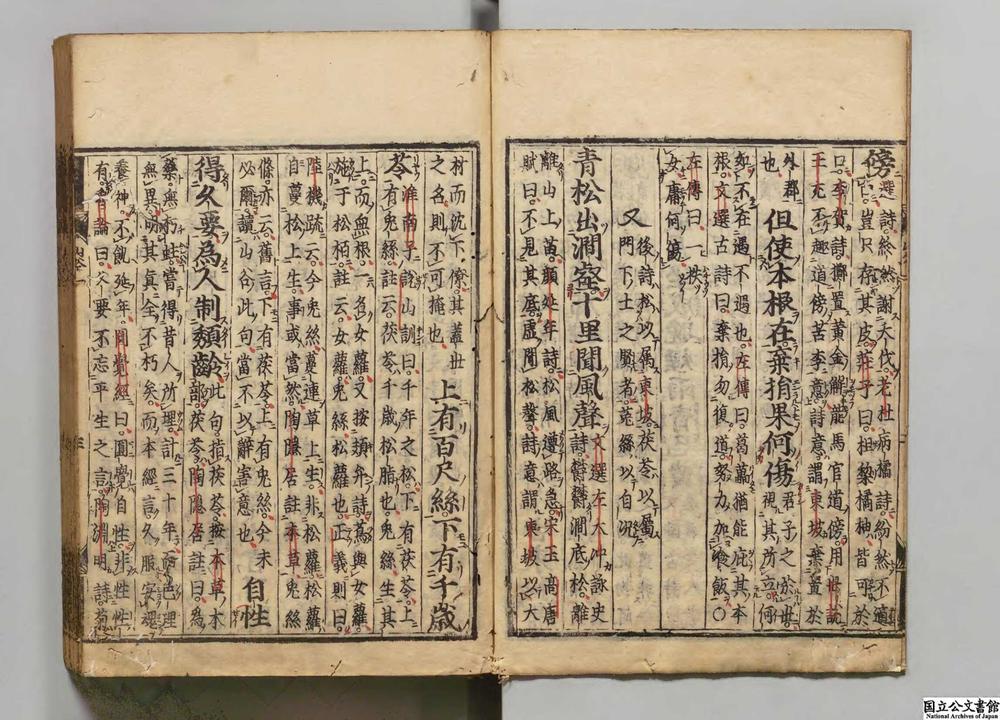 傍
選詩。終然謝夭伐。老杜病橘詩。紛然不適
口。豈只存其皮。莊子曰。柤梨橘柚皆可於
口。李賀詩。擲置黃金解龍馬。官道傍用世説
王戎不趣道傍苦李意。詩意謂東坡棄置於
外郡
也。
但使本根在棄捐果何傷
君子之於世。
視其所立。何
如。不在遇不遇也。左傳曰。葛藟猶能庇其本
根。文選古詩曰。棄捐勿復道。努力加餐飯。○
左傳曰。一抶
女庸何傷
又
後詩。松以属東坡。茯苓以屬
門下士之賢者。菟絲以自況
青松出澗壑十里聞風聲
文選左太冲詠史
詩。欝欝澗底松。離
離山上苗。顔延年詩。松風遵路急。宋玉高唐
賦曰。不見其底虛聞松聲。詩意謂東坡以大
材而沈下僚。其蓋世
之名則不可掩也
上有百尺絲下有千歲
苓
淮南子說山訓曰。千年之松。下有茯苓。上
有兎絲。註云。茯苓千歲松脂也。兎絲生其
上。而無根。一名女蘿。又按頍弁詩。蔦與女蘿。
施于松柏。註云。女蘿兎絲松蘿也。正義則曰
陸機疏云。今兎絲蔓連草上生。非松蘿。松蘿
自蔓松上生。事或當然。陶隱居註本草。兎絲
條亦云。舊言下有茯苓。上有兎絲。今未
必爾。讀山谷此句。當不以辭害意也。
自性
得久要爲人制頽齡
此句指茯苓。按本草。木
部茯苓。陶隱居註曰。爲
藥無朽蛀。嘗得昔人所埋。計三十年。而色理
無異。明其貞全不朽矣。而本經言。久服安魂
養神。不飢延年。圓覺經曰。圓覺自性。非性性
有。魯論曰。久要不忘平生之言。陶淵明詩。菊
国立公文書館
National Archives of Japan